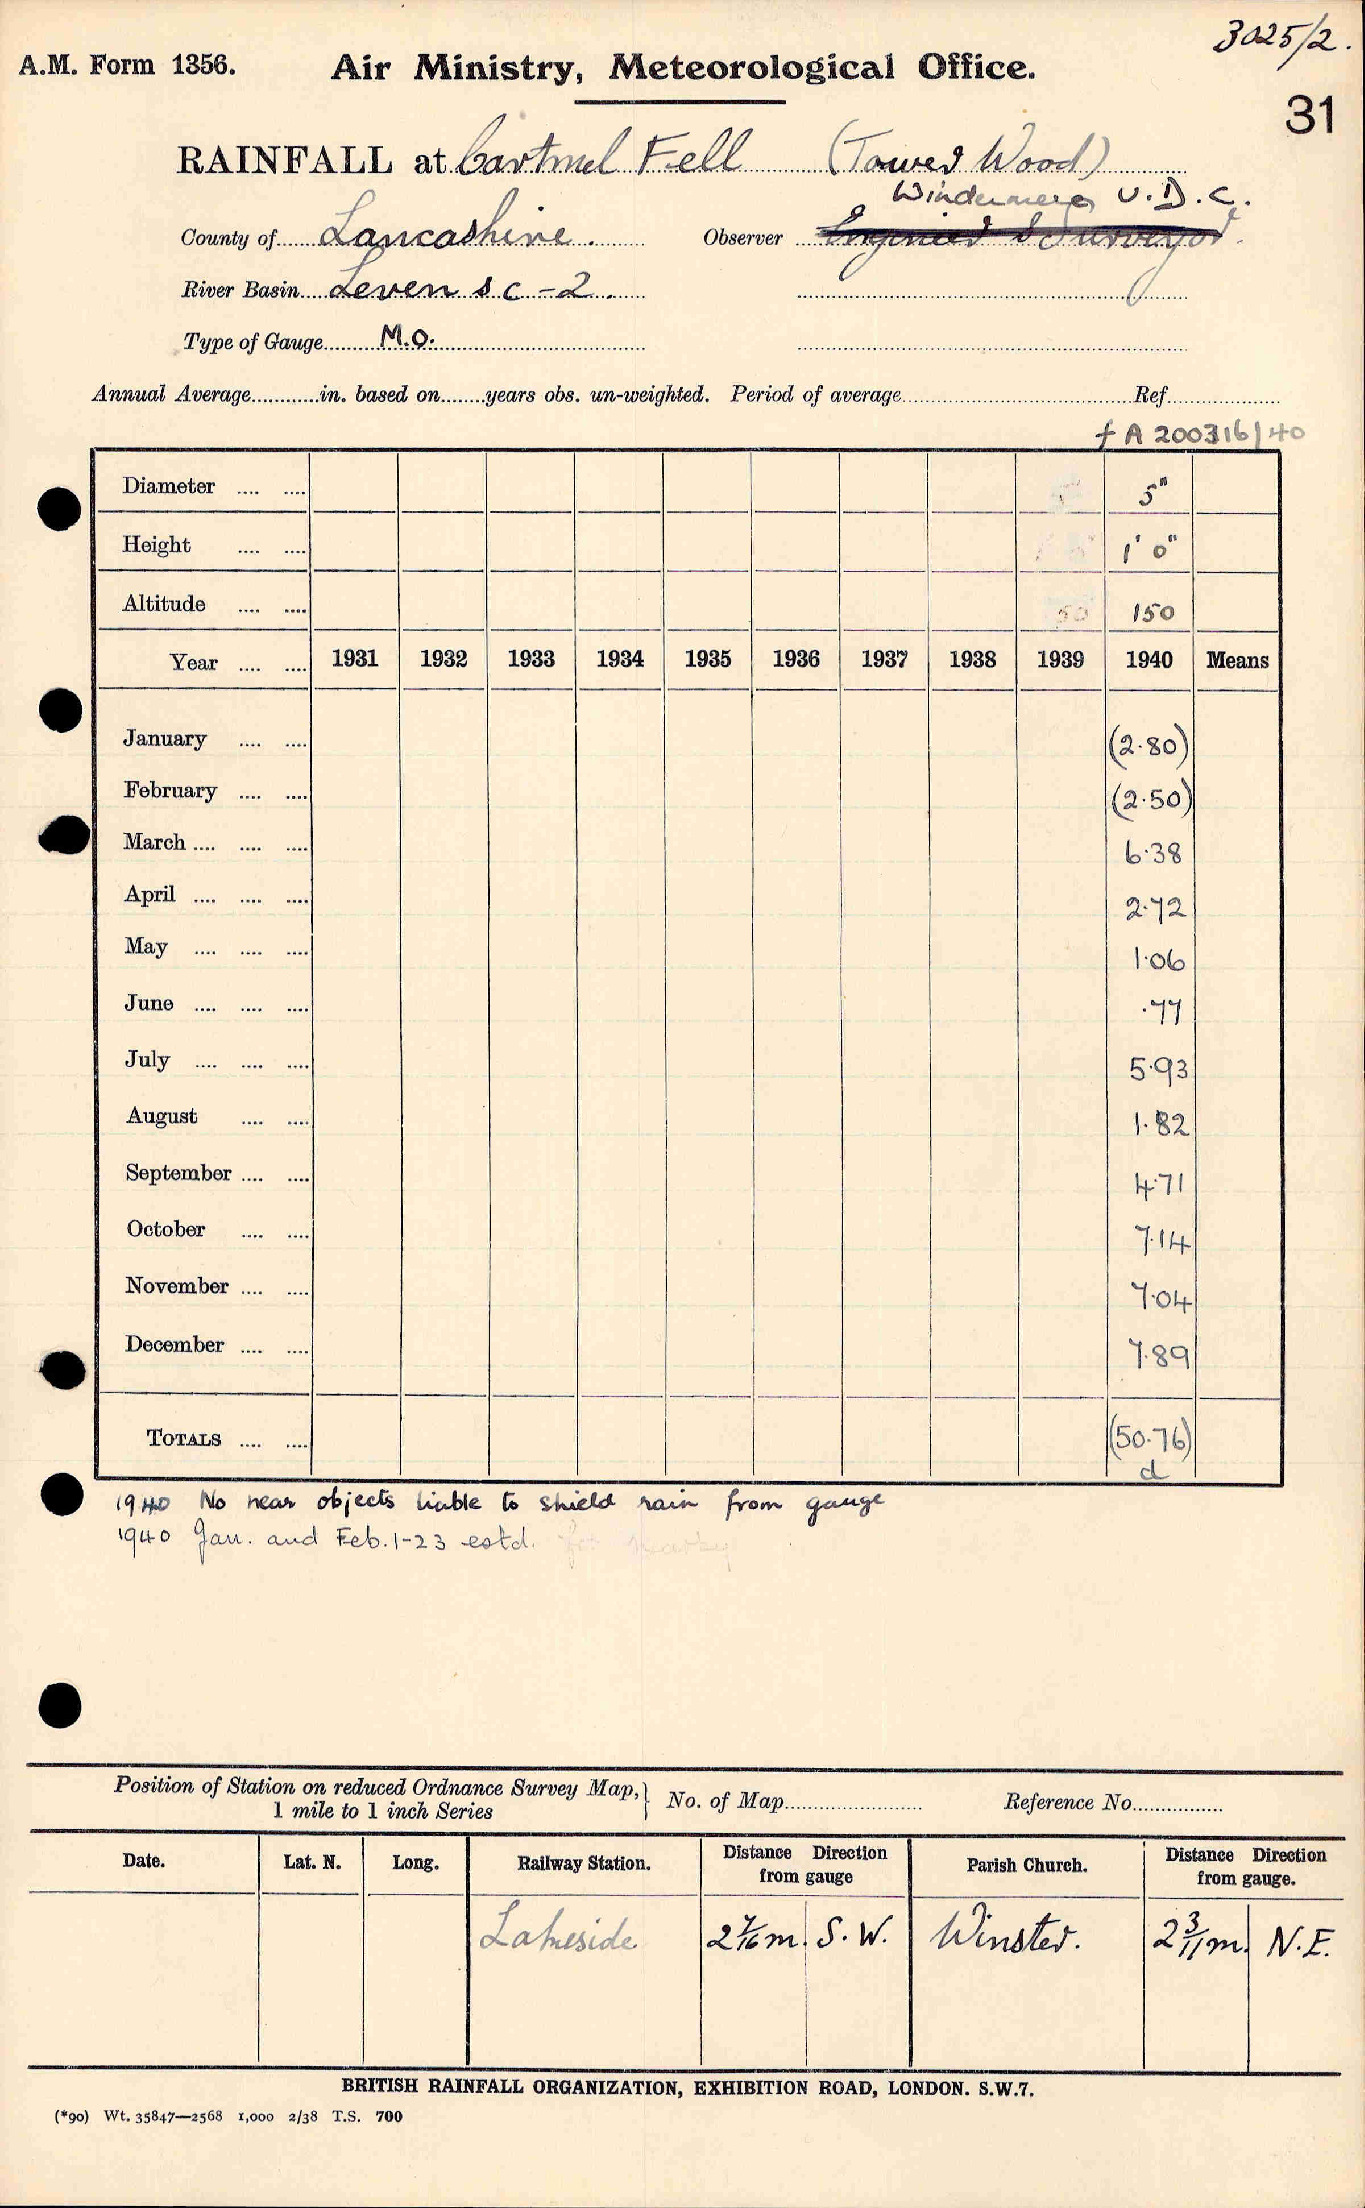 3025/2.
A.M. Form 1356. Air Ministry, Meteorological Office.
31
RAINFALL at Cartmel Fell (Tower Wood)
Windermere U.D.C.
County of Lancashire. Observer Engineer & Surveyor.
River Basin Leven & c - 2.
Type of Gauge M.O.
Annual Average in. based on years obs. un-weighted. Period of average Ref
† A 200316/40
Diameter 5"
Height 1' 0"
Altitude 50 150
Year 1931 1932 1933 1934 1935 1936 1937 1938 1939 1940 Means
January (2.80)
February (2.50)
March 6.38
April 2.72
May 1.06
June .77
July 5.93
August 1.82
September 4.71
October 7.14
November 7.04
December 7.89
TOTALS (50.76)
d
1940 No near objects liable to shield rain from gauge
1940 Jan. and Feb. 1-23 estd.
Position of Station on reduced Ordnance Survey Map, } No. of Map Reference No.
1 mile to 1 inch Series
Date. Lat. N. Long. Railway Station. Distance Direction from gauge Parish Church. Distance Direction from gauge.
Lakeside 2 7/16 m. S.W. Winster. 2 3/11 m. N.E.
BRITISH RAINFALL ORGANIZATION, EXHIBITION ROAD, LONDON. S.W.7.
(*90) Wt. 35847—2568 1,000 2/38 T.S. 700